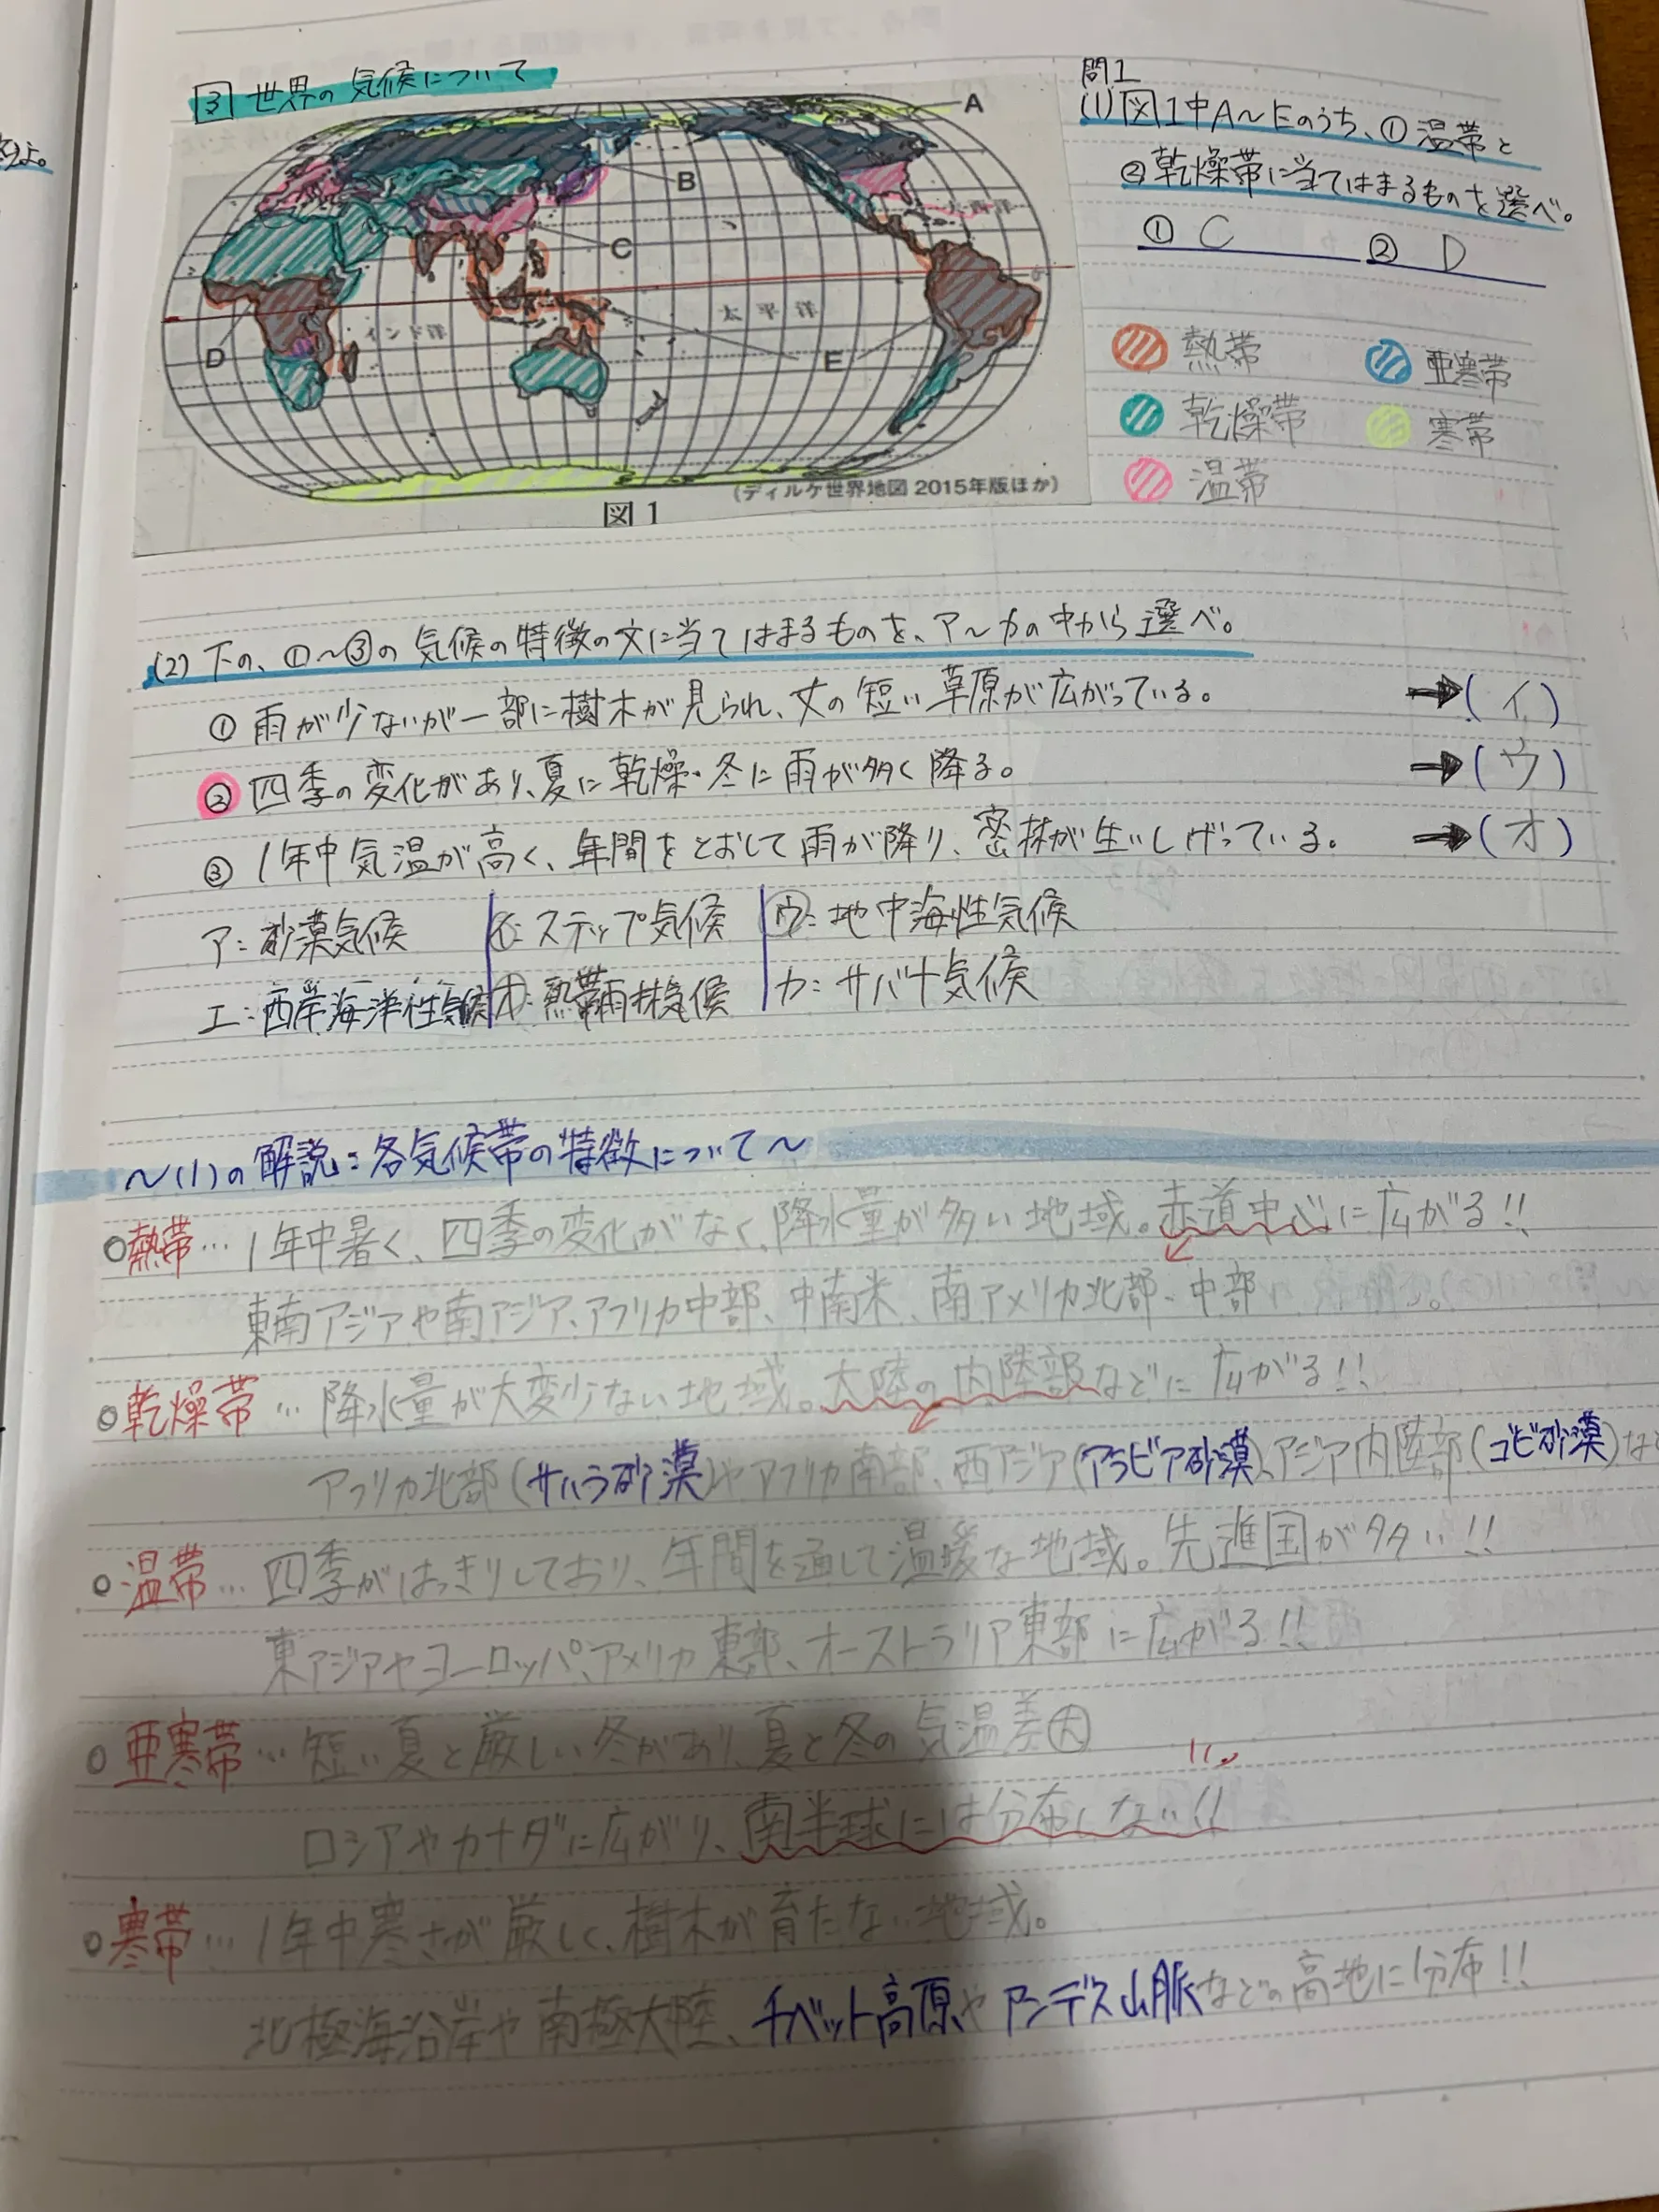 3 世界の気候について
A
B
C
D
E
インド洋
太平洋
(ディルケ世界地図 2015年版ほか)
図1
問1
(1)図1中A～Eのうち、①温帯と
②乾燥帯に当てはまるものを選べ。
① C ② D
熱帯 亜寒帯
乾燥帯 寒帯
温帯
(2)下の、①～③の気候の特徴の文に当てはまるものを、ア～カの中から選べ。
①雨が少ないが一部に樹木が見られ、丈の短い草原が広がっている。 →(イ)
②四季の変化があり、夏に乾燥・冬に雨が多く降る。 →(ウ)
③1年中気温が高く、年間をとおして雨が降り、密林が生いしげっている。 →(オ)
ア:砂漠気候 イ:ステップ気候 ウ:地中海性気候
エ:西岸海洋性気候 オ:熱帯雨林気候 カ:サバナ気候
～(1)の解説:各気候帯の特徴について～
○熱帯…1年中暑く、四季の変化がなく、降水量が多い地域。赤道中心に広がる!!
東南アジアや南アジア、アフリカ中部、中南米、南アメリカ北部・中部
○乾燥帯…降水量が大変少ない地域。大陸の内陸部などに広がる!!
アフリカ北部(サハラ砂漠)やアフリカ南部、西アジア(アラビア砂漠)、アジア内陸部(ゴビ砂漠)など
○温帯…四季がはっきりしており、年間を通して温暖な地域。先進国が多い!!
東アジアやヨーロッパ、アメリカ東部、オーストラリア東部に広がる!!
○亜寒帯…短い夏と厳しい冬があり、夏と冬の気温差大
ロシアやカナダに広がり、南半球には分布しない!!
○寒帯…1年中寒さが厳しく、樹木が育たない地域。
北極海沿岸や南極大陸、チベット高原やアンデス山脈などの高地に分布!!